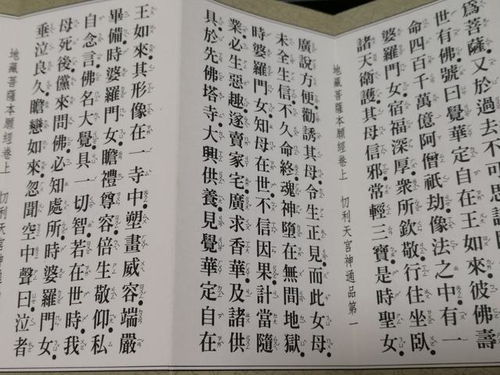 爲菩薩又於過去不可
世有佛號曰覺華定自在王如來彼佛壽
命四百千萬億阿僧祇劫像法之中有一
婆羅門女宿福深厚眾所欽敬行住坐臥
諸天衛護其母信邪常輕三寶是時聖女
地藏菩薩本願經卷上 忉利天宮神通品第一
廣說方便勸誘其母令生正見而此女母
未全生信不久命終魂神墮在無間地獄
時婆羅門女知母在世不信因果計當隨
業必生惡趣遂賣家宅廣求香華及諸供
具於先佛塔寺大興供養見覺華定自在
王如來其形像在一寺中塑畫威容端嚴
畢備時婆羅門女瞻禮尊容倍生敬仰私
自念言佛名大覺具一切智若在世時我
母死後儻來問佛必知處所時婆羅門女
垂泣良久瞻戀如來忽聞空中聲曰泣者
地藏菩薩本願經卷上 忉利天宮神通品